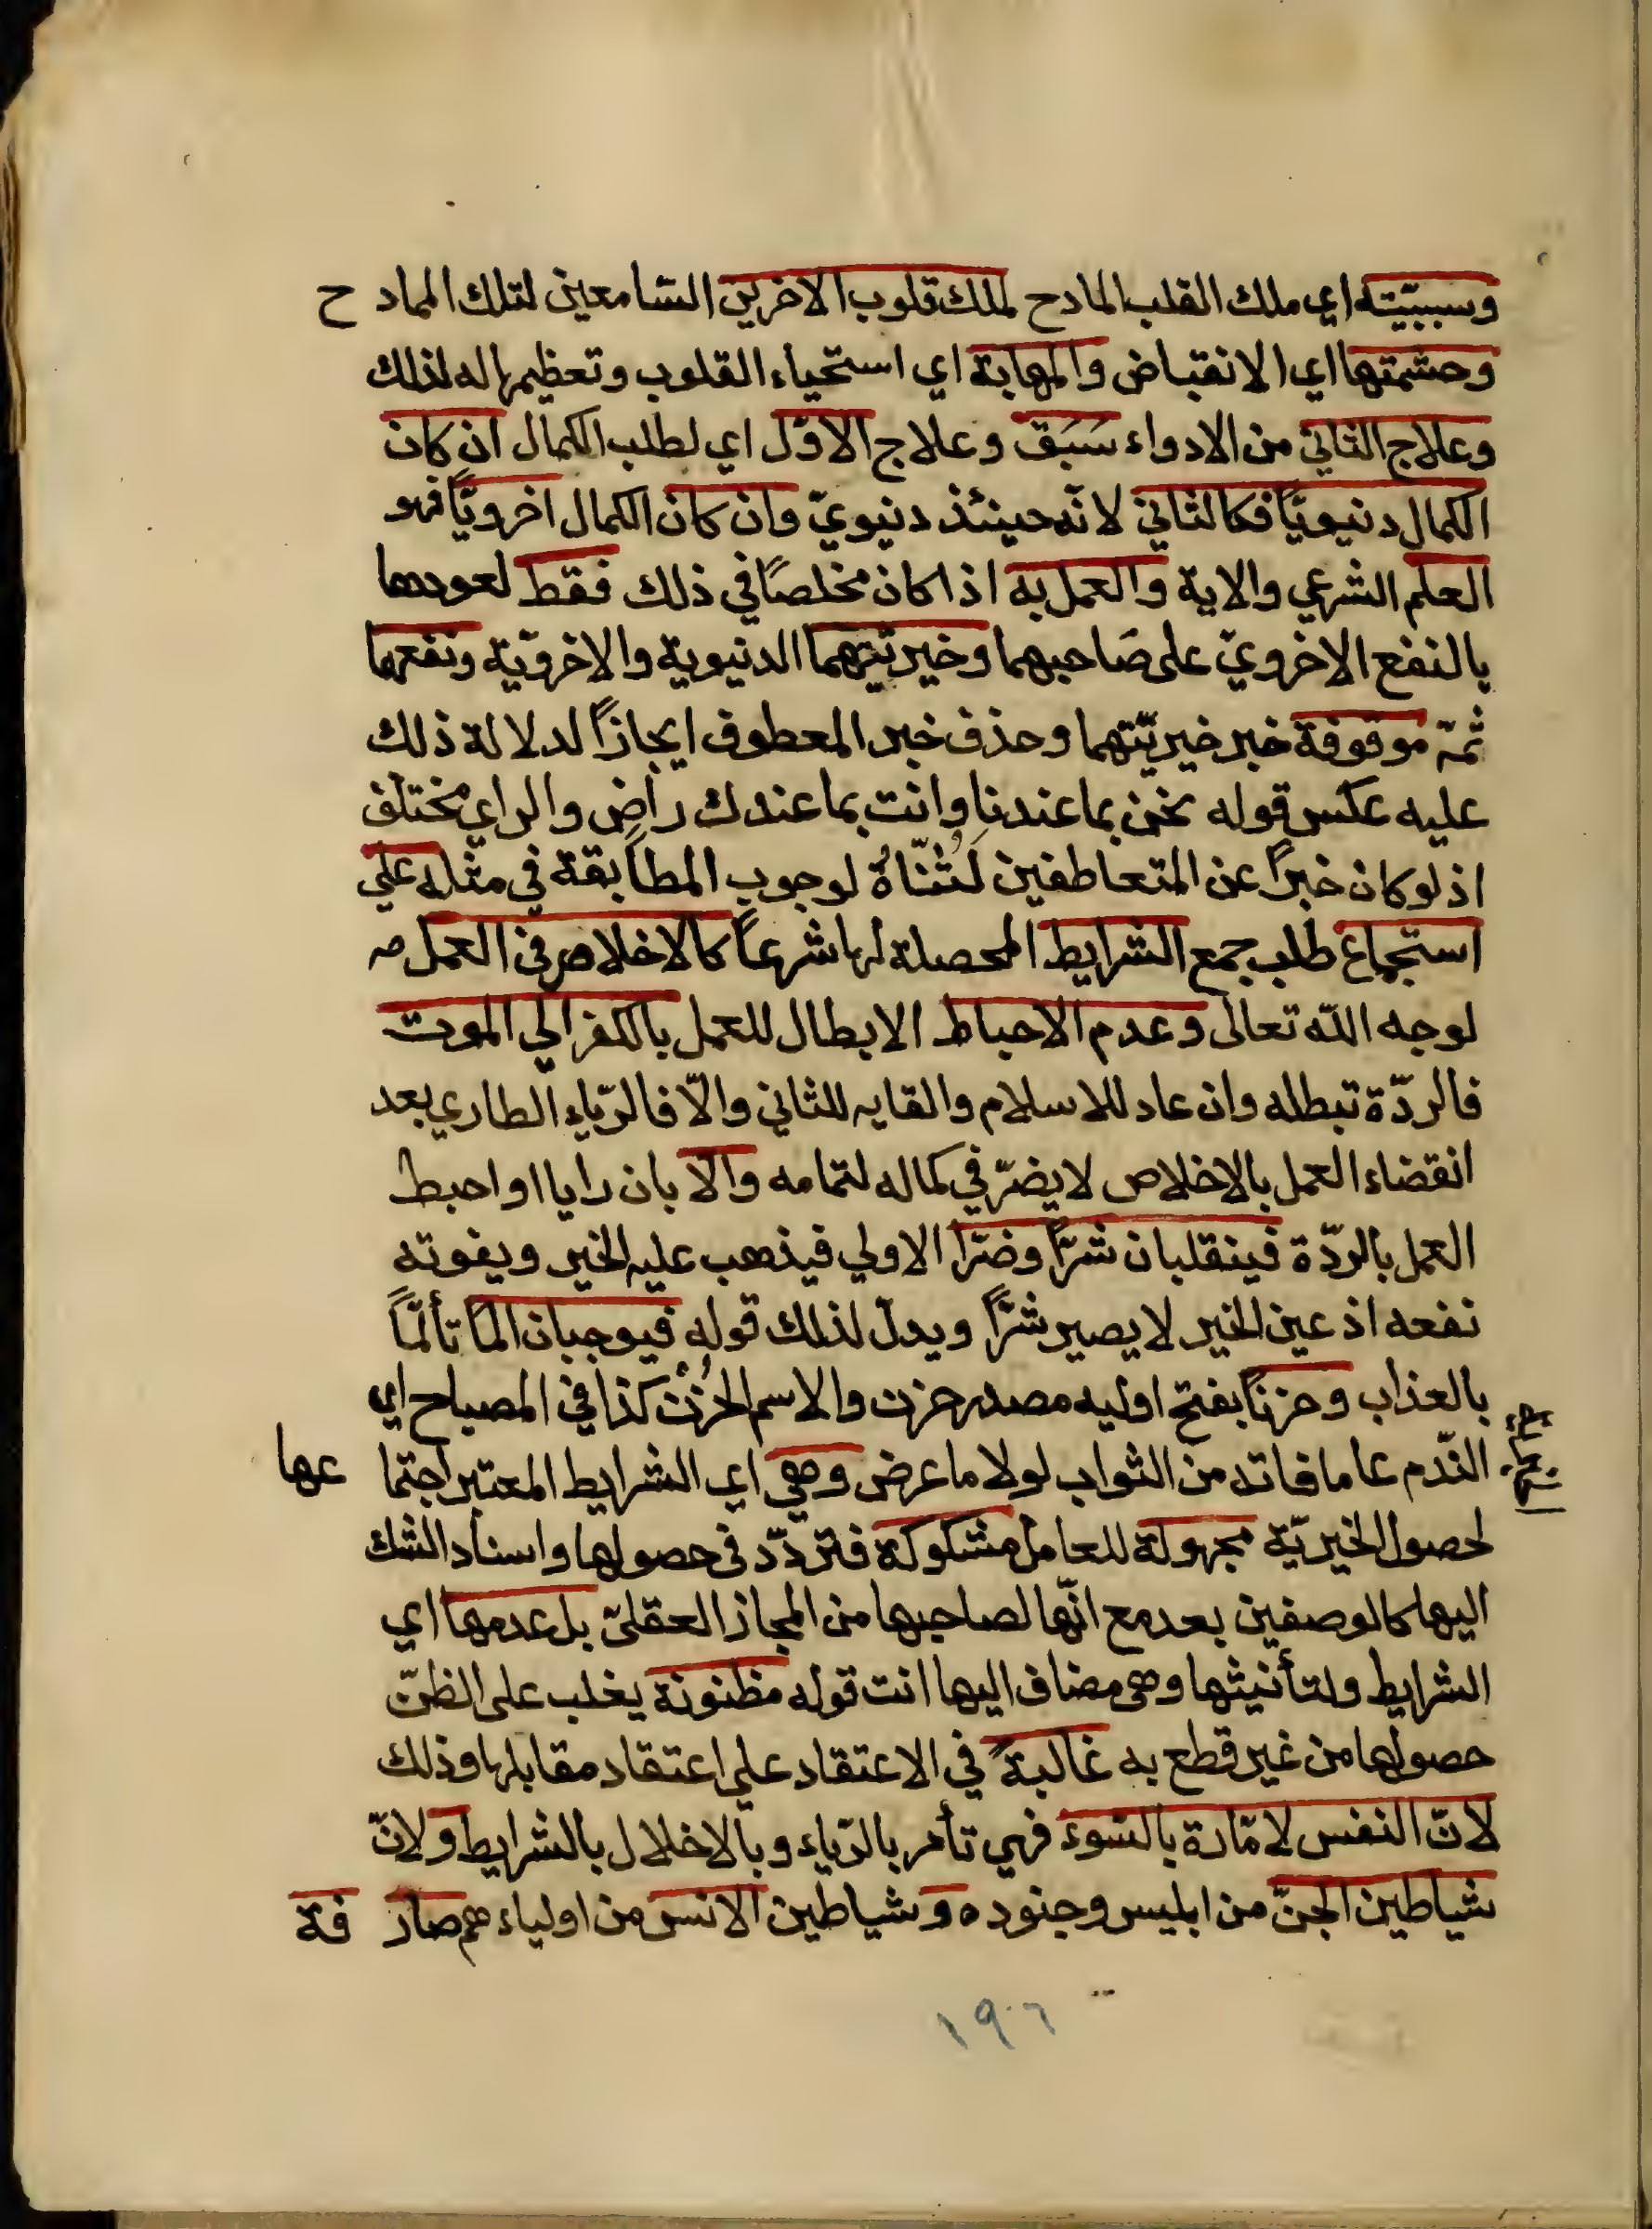 وسببيّته اي ملك القلب المادح لملك قلوب الاخرين السّامعين لتلك المادح
وحشمتها اي الانقباض والمهابة اي استحياء القلوب وتعظيمها له لذلك
وعلاج الثاني من الادواء سَبَق وعلاج الاوّل اي لطلب الكمال ان كان
الكمال دنيويّاً فكالثاني لانّه حينئذ دنيويّ وان كان الكمال اخرويّاً فهو
العلم الشرعي والاية والعمل به اذا كان مخلصاً في ذلك فقط لعودهما
بالنفع الاخرويّ على صَاحبهما وخيريّتهما الدنيوية والاخرويّة ونفعهما
ثمّة موقوفة خبر خيريّتهما وحذف خبر المعطوف ايجازاً لدلالة ذلك
عليه عكس قوله نحن بما عندنا وانت بما عندك راضٍ والراي مختلف
اذ لو كان خبراً عن المتعاطفين لَثُنّاهُ لوجوب المطابقة في مثله على
استجماع طلب جمع الشرايط المحصلة لها شرعاً كالاخلاص في العمل
لوجه اللّه تعالى وعدم الاحباط الابطال للعمل بالكفر الي الموت
فالردّة تبطله وان عاد للاسلام والقايه للثاني والّا فالرّياء الطاري بعد
انقضاء العمل بالاخلاص لا يضرّ في كماله لتمامه والّا بان رايا او احبط
العمل بالردّة فينقلبان شرّاً وضرّا الاولي فيذهب عليه الخير ويفوته
نفعه اذ عين الخير لا يصير شرّاً ويدلّ لذلك قوله فيوجبان الماً تألّماً
بالعذاب وحزناً بفتح اوليه مصدر حزن والاسم الحُزْن كذا في المصباح اي
النّدم عاما فاته من الثواب لولا ما عرض وهي اي الشرايط المعتبر اجتماعها
لحصول الخيريّة مجهولة للعامل مشكوكة فتردّد في حصولها واسناد الشك
اليها كالوصفين بعد مع انّها لصاحبها من المجاز العقليّ بل عدمها اي
الشرايط ولتأنيثها وهى مضاف اليها انت قوله مظنونة يغلب على الظنّ
حصولها من غير قطع به غالبةً في الاعتقاد علي اعتقاد مقابلها وذلك
لانّ النفس لامّارة بالسّوء فهي تأمر بالرّياء وبالاخلال بالشرايط ولانّ
شياطين الجنّ من ابليس وجنوده وشياطين الانس من اولياءهم صارفة
١٩٠٦